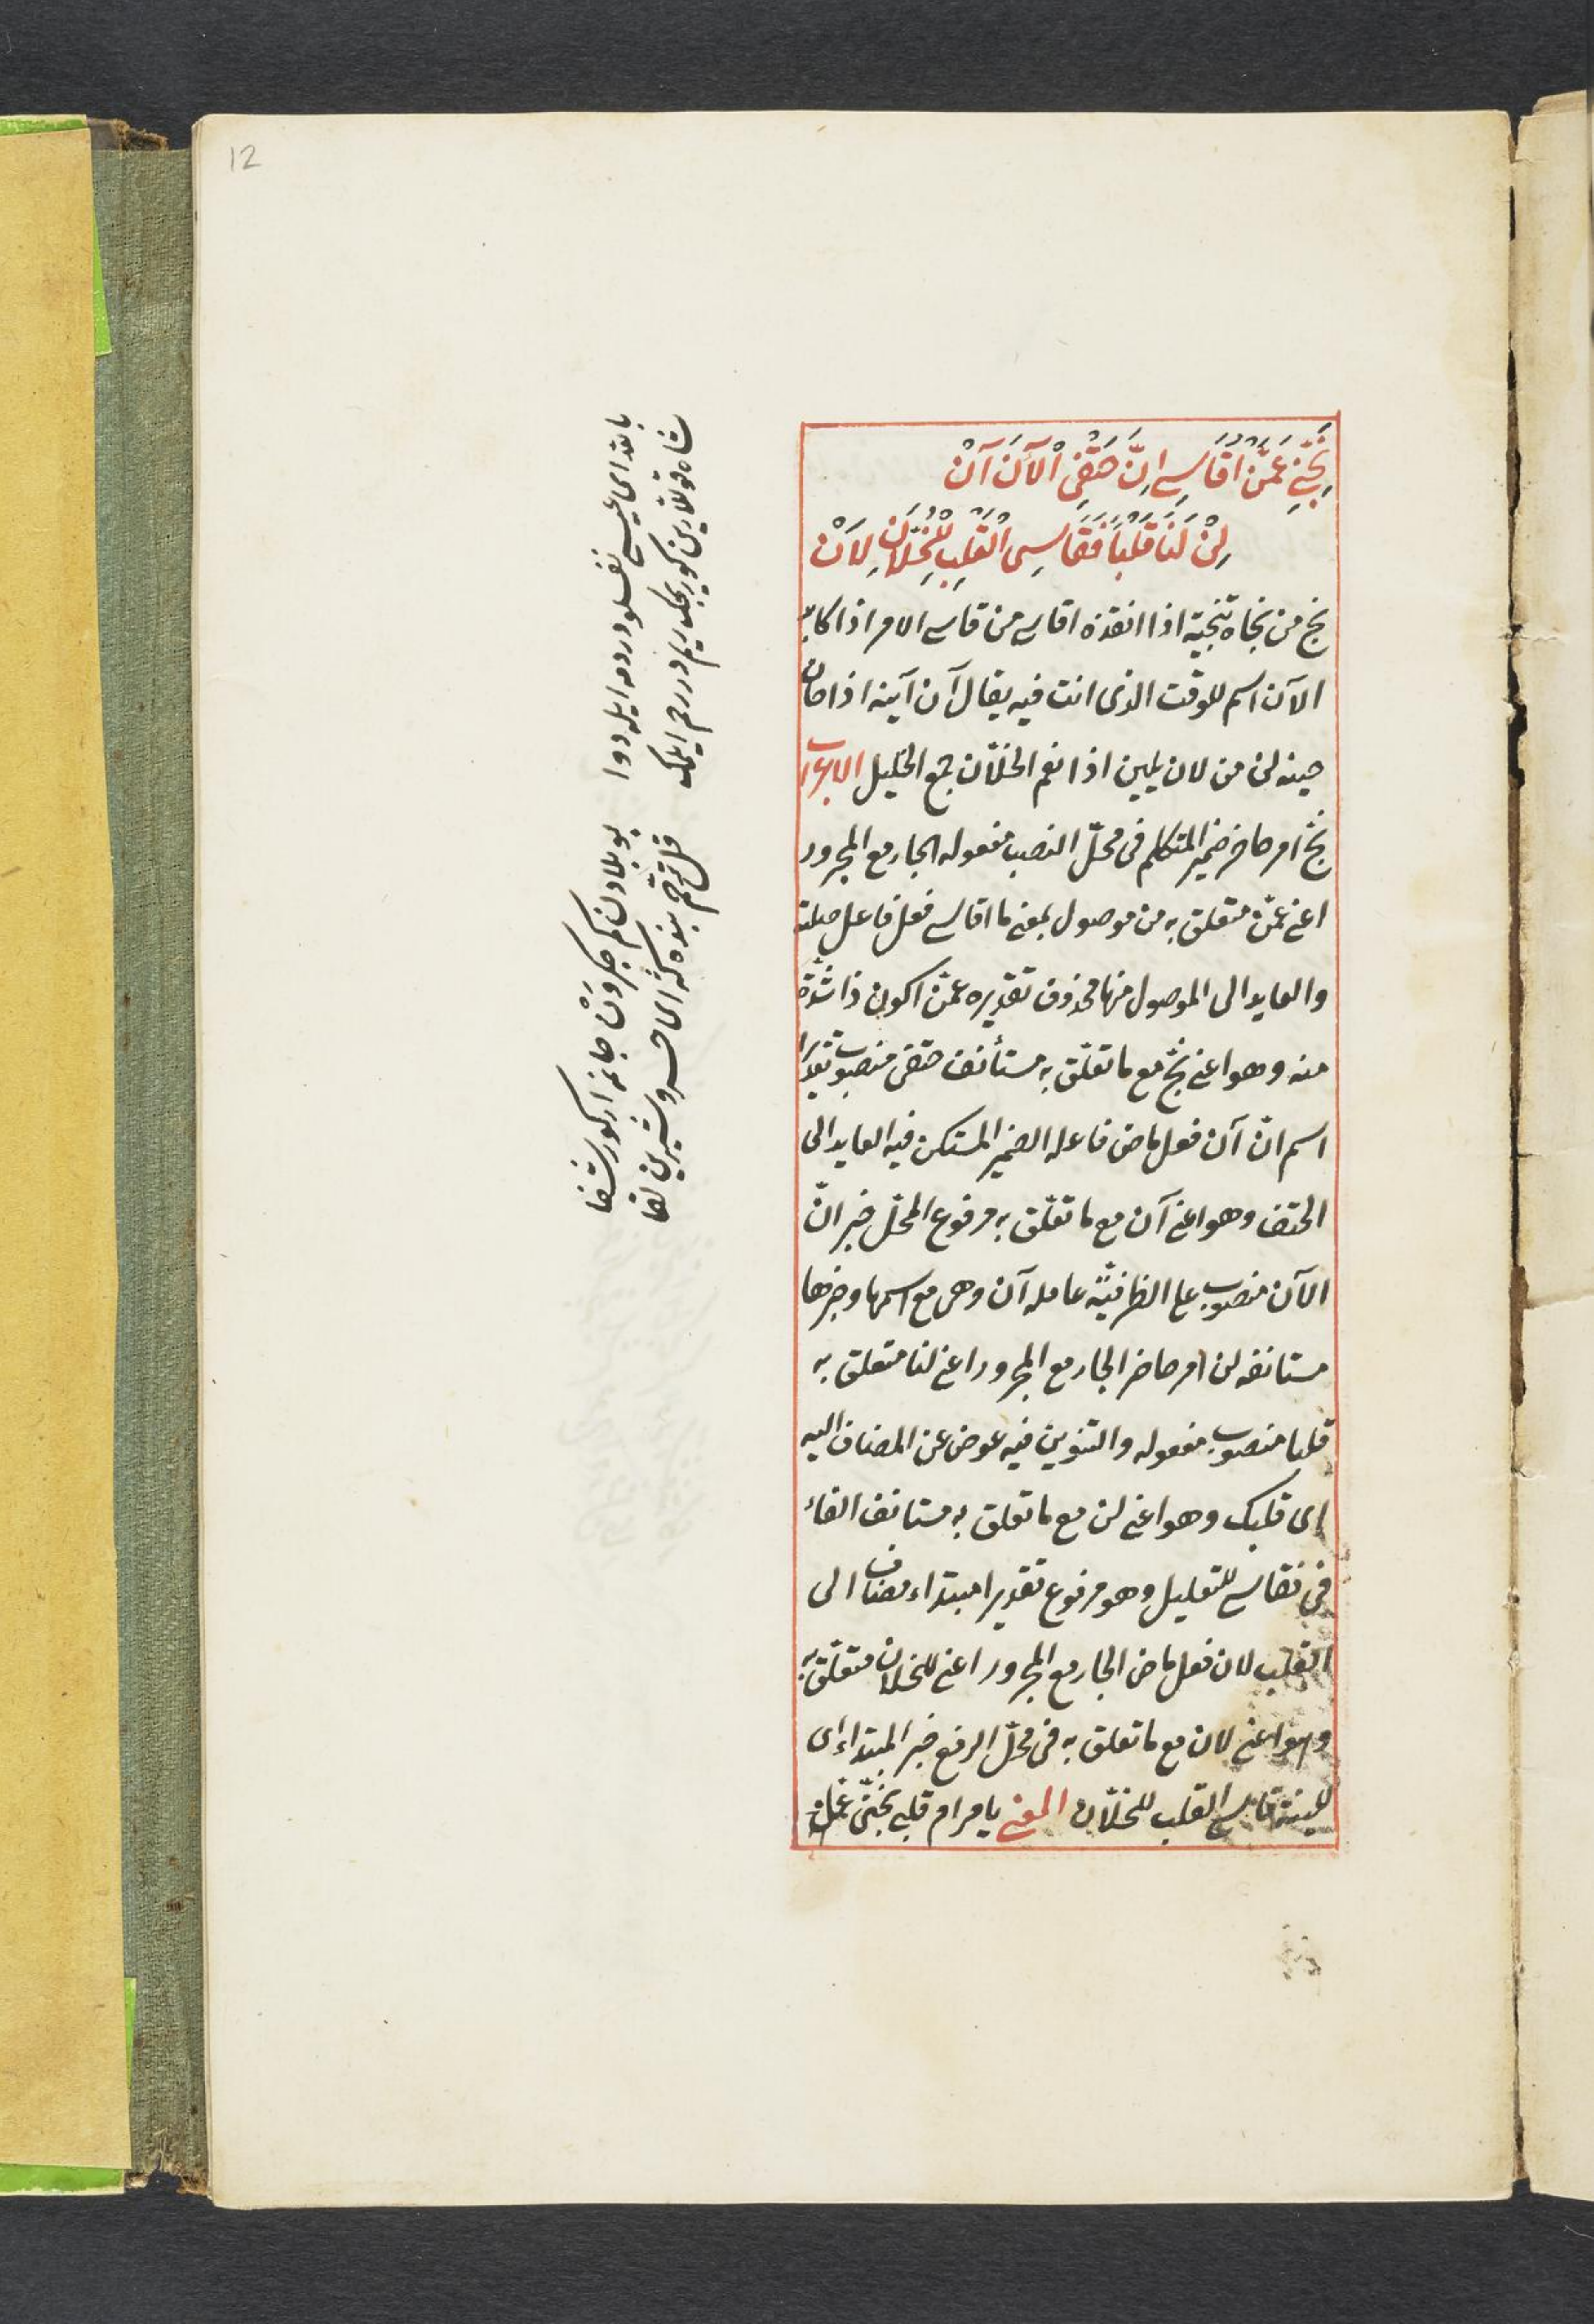 12
نَجِّنِي عَمَّنْ اُقَاسِي اِنَّ حَتْفِي اْلآنَ آنْ
لِنْ لَنَا قَلْبًا فَقَاسِي الْقَلْبِ لِلْخُلَّانِ لَانْ
نج من نجاه تنجية اذا انقذه اقاسي من قاسى الامر اذا كابد
الآن اسم للوقت الذى انت فيه يقال آن آينه اذا حان
حينه لن من لان يلين اذا نعم الخلّان جمع الخليل الاعراب
نجّ امر حاضر ضمير المتكلم فى محلّ النصب مفعوله الجار مع المجرور
اعنى عمّن متعلق به من موصول بمعنى ما اقاسي فعل فاعل صلته
والعايد الى الموصول منها محذوف تقديره عمّن اكون ذا شدّة
منه وهو اعنى نجّ مع ما تعلّق به مستأنف حتفى منصوب تقديرا
اسم انّ آن فعل ماض فاعله الضمير المستكن فيه العايد الى
الحتف وهو اعنى آن مع ما تعلّق به مرفوع المحلّ خبر انّ
الآن منصوب على الظرفيّة عامله آن وهى مع اسمها وخبرها
مستانفه لن امر حاضر الجار مع المجرور اعنى لنا متعلق به
قلبا منصوب مفعوله والتنوين فيه عوض عن المضاف اليه
اى قلبك وهو اعنى لن مع ما تعلق به مستانف الفاء
فى فقاسي للتعليل وهو مرفوع تقديرا مبتداء مضاف الى
القلب لان فعل ماض الجار مع المجرور اعنى للخلان متعلّق به
وهو اعنى لان مع ما تعلق به فى محلّ الرفع خبر المبتداء اى
قاسي القلب للخلّان المعنى يا مرام قلبى نجّنى عمّن
شاه قوللارين كوريجك ريم در رحم ايلمك
قل ترحّم بنده كه اى خسرو شيرين لقا
بالله اى عيسى نفسلو دردمه ايله دوا
بو بلادن كم جكر دن جانمه اركور شفا